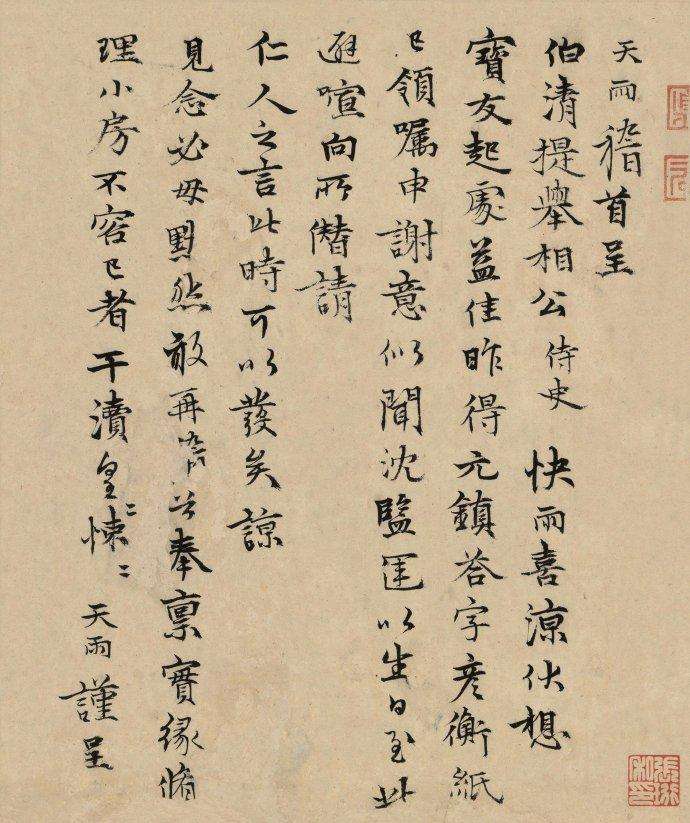 天雨稽首呈
伯清提舉相公侍史 快雨喜涼伏想
寶友起處益佳昨得元鎮荅字彦衡紙
已領嘱申謝意似聞沈監運以生日至此
避喧向所僭請
仁人之言此時可以發矣諒
見念必毋默然敢再 奉稟實緣脩
理小房不容已者干瀆皇〻悚〻 天雨謹呈